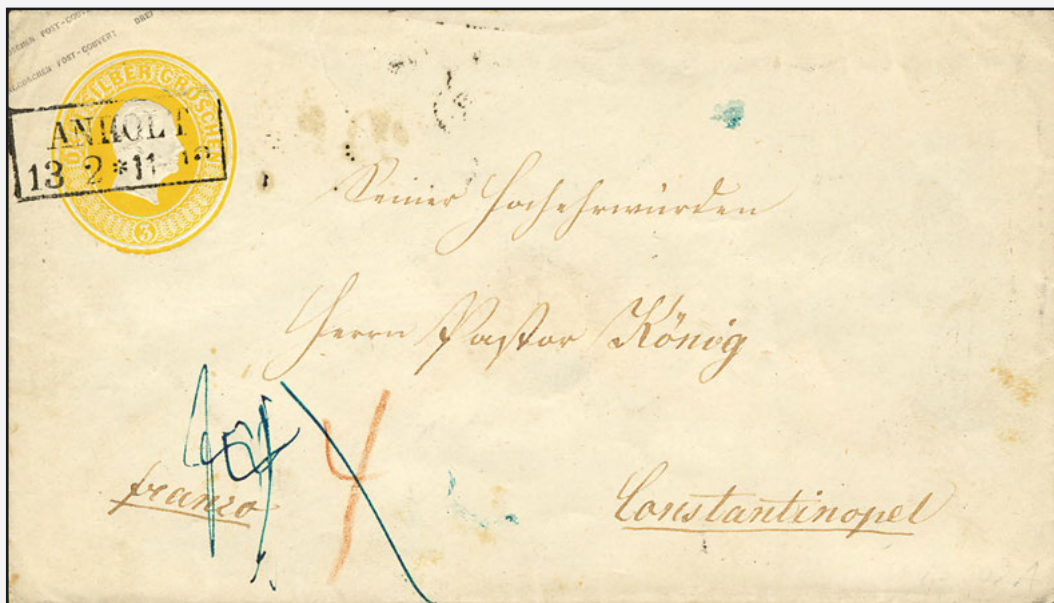 GROSCHEN POST-COUVERT DREI
GROSCHEN POST-COUVERT
SILBER GROSCHEN
3
ANHOLT
13 2 * 11-12
Seiner Hochehrwürden
Herrn Pastor König
4
franco
Constantinopel